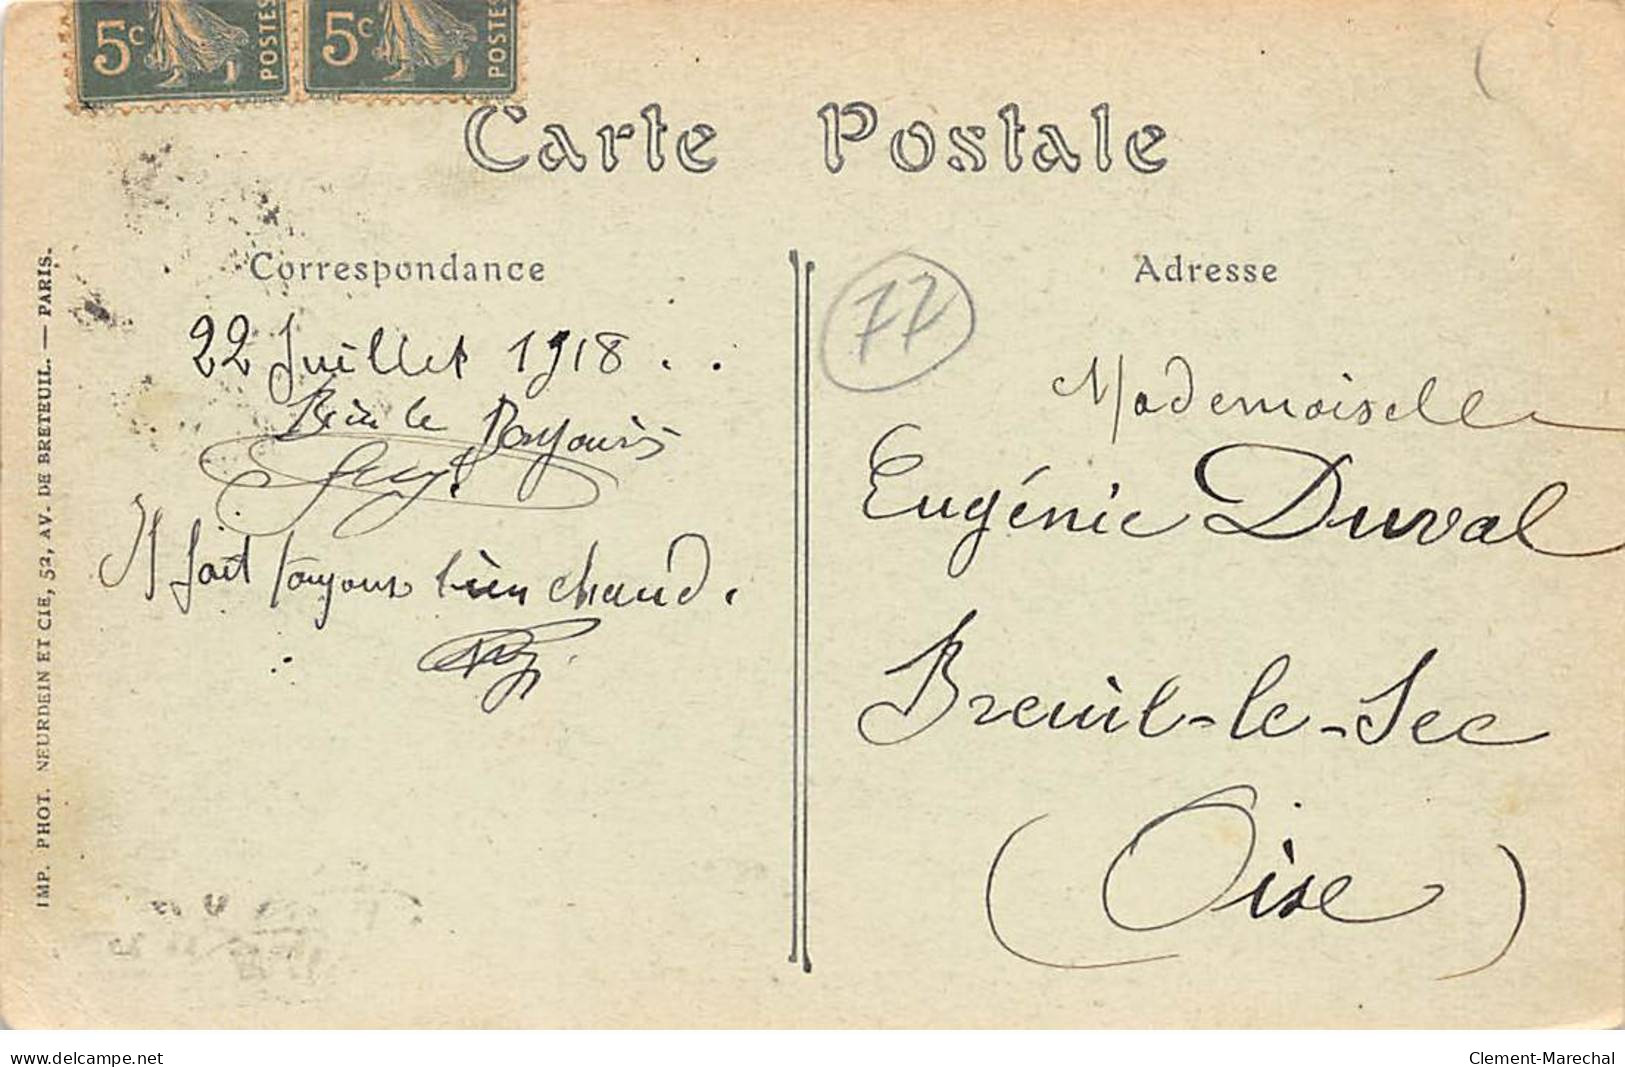 5c POSTES 5c POSTES
Carte Postale
Correspondance
Adresse
77
22 Juillet 1918 . .
le
Il fait toujours bien chaud.
Mademoiselle
Eugénie Duval
Breuil-le-Sec
(Oise)
IMP. PHOT. NEURDEIN ET CIE, 52, AV. DE BRETEUIL. — PARIS.
www.delcampe.net
Clement-Marechal